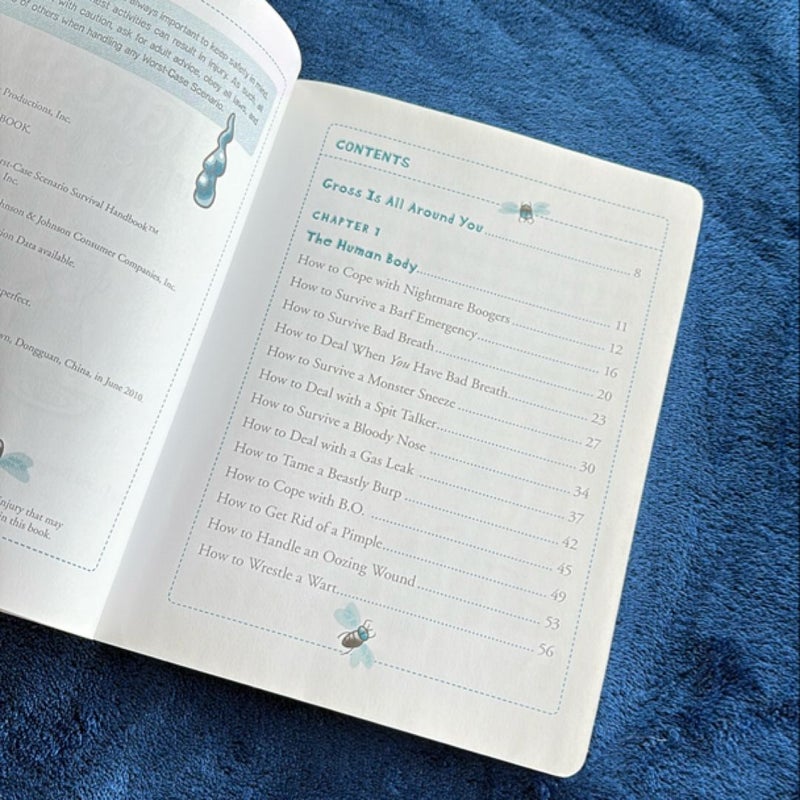 always important to keep safety in mind.
activities can result in injury. As such, all
with caution, ask for adult advice, obey all laws, and
of others when handling any Worst-Case Scenario.
Productions, Inc.
BOOK
rst-Case Scenario Survival Handbook™
Inc.
hnson & Johnson Consumer Companies, Inc.
ion Data available.
perfect.
wn, Dongguan, China, in June 2010.
injury that may
in this book.
CONTENTS
Gross Is All Around You 8
CHAPTER 1
The Human Body 11
How to Cope with Nightmare Boogers 12
How to Survive a Barf Emergency 16
How to Survive Bad Breath 20
How to Deal When You Have Bad Breath 23
How to Survive a Monster Sneeze 27
How to Deal with a Spit Talker 30
How to Survive a Bloody Nose 34
How to Deal with a Gas Leak 37
How to Tame a Beastly Burp 42
How to Cope with B.O. 45
How to Get Rid of a Pimple 49
How to Handle an Oozing Wound 53
How to Wrestle a Wart 56